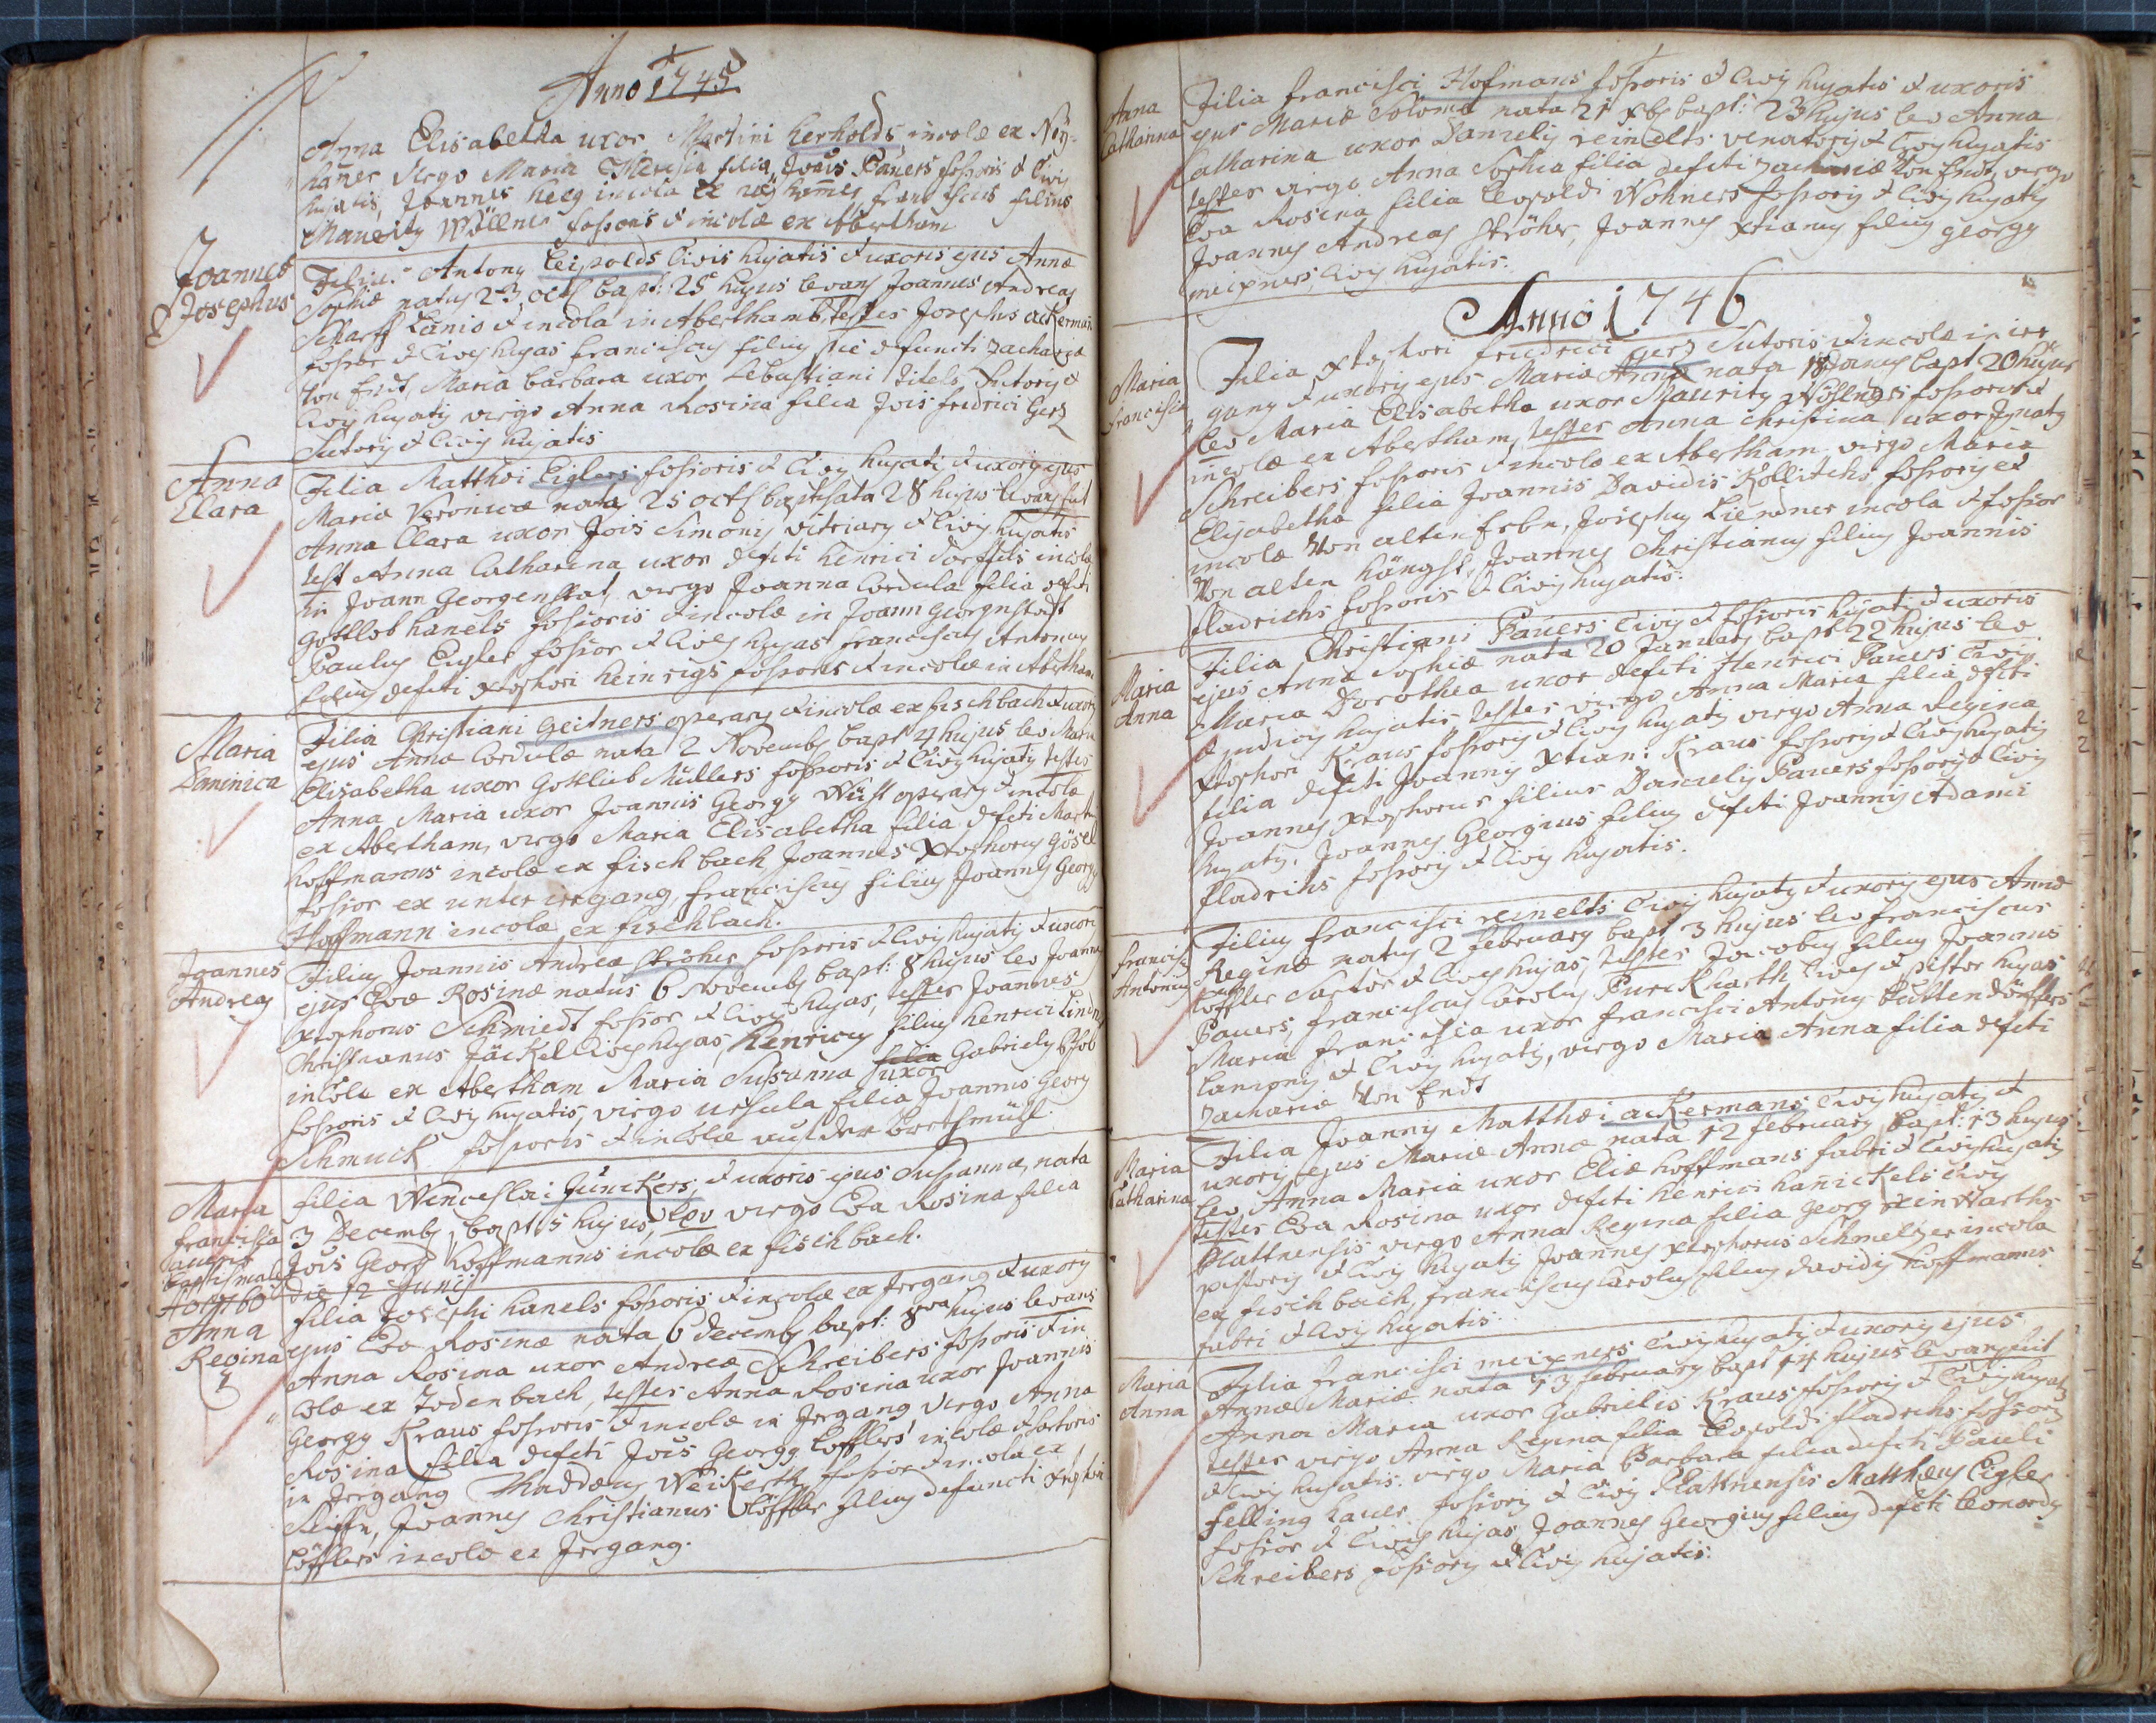 Anno 1745
Anna Elisabetha uxor Martini herholds, incolæ ex Ney-
haüer virgo Maria Theresia filia Jois Pauers foßoris & Civis
hujatis, Joannes heeg incola ex neÿ Franciscus filius
Maurity Wöllner foßoris & incolæ ex Abertham
Joannes
Josephus
Filius Antony Leipolds Civis hujatis & uxoris ejus Annæ
Sophiæ natus 23 octb bapt: 25 hujus levans Joannes Andreas
Scharff Lanio & incola in Aberthamb, testes Josephus ackerman
foßor & Civis hujas franciscus filius defuncti Zachariæ
Von Endt, Maria barbara uxor Sebastiani Titels, Sutoris &
Civis hujatis virgo Anna Rosina filia Jois fridrici Gerz
Sutoris & Civis hujatis
Anna
Clara
Filia Matthæi Eiglers foßoris & Civis hujatis & uxoris ejus
Mariæ Veronicæ nata 25 octb baptisata 28 hujus levans fuit
Anna Clara uxor Jois Simonis vitriary & Civis hujatis
test Anna Catharina uxor defcti henrici incolæ
in Joann Georgenstat, virgo Joanna Cordula filia defcti
Gottlob hanels foßioris & incolæ in Joann Georgnstatt
Paulus Eigler foßor & Civis hujas franciscus Antonius
filius defcti xtophori heinrigs foßoris & incolæ in Abertham
Maria
Dominica
Filia Christiani Geitners operary & incolæ ex fischbach & uxoris
ejus Annæ Cordulæ nata 2 Novemb bapt 4 hujus lev Maria
Elisabetha uxor Gottlieb Müllers foßoris & Civis hujatis testes
Anna Maria uxor Joannis Georgy Wüst operary & incolæ
ex Abertham, virgo Maria Elisabetha filia defcti Martini
hoffmanns incolæ ex fischbach Joannes Xtophorus Gösel
foßior ex unter irrgang, franciscus filius Joannis Georgy
Hoffmann incolæ ex fischbach.
Joannes
Andreas
Filius Joannis Andreæ Ströher foßoris & Civis hujatis & uxoris
ejus Evæ Rosinæ natus 6 Novemb bapt: 8 hujus lev Joannes
xtophorus Schmiedt foßor & Civis hujas, testes Joannes
Christianus Jäckel Civis hujas, Henricus filius henrici Lind
incolæ ex Abertham Maria Susanna filia uxor Gabrielis
foßoris & Civis hujatis, virgo ursula filia Joannis Georg
Schmuck foßoris & incolæ aus der
Maria
francisca
baptismales
Ao 1760 die 12 Junij
filia Wenceslai Jünckers, & uxoris ejus Susannæ, nata
3 Decemb, bapt 5 hujus, lev virgo Eva Rosina filia
Jois Georg hoffmanns incolæ ex fischbach.
Anna
Regina
filia Josephi hanels foßoris & incolæ ex Jrgang & uxoris
ejus Evæ Rosinæ nata 6 decemb bapt: 8va hujus levans
Anna Rosina uxor Andreæ Schreibers foßoris & in
colæ ex Todenbach, testes Anna Rosina uxor Joannis
Georgy Kraus foßoris & incolæ in Jrgang virgo Anna
Rosina filia defcti Jois Georgy Löfflers incolæ & sartoris
in Jrgang Thaddæus Weikerth foßior & incola ex
Joannes Christianus Löffler filius defuncti
Löfflers incolæ ex Jrrgang.
Anna
Catharina
Filia francisci Hofmans foßoris & Civis hujatis & uxoris
ejus Mariæ Solome nata 21 xb bapt: 23 hujus lev Anna
Catharina uxor Danielis reinelts venatoris & Civis hujatis
testes virgo Anna Sophia filia defcti Zachariæ Von Endt, virgo
Eva Rosina filia Leopoldi Wohners foßoris & Civis hujatis
Joannes Andreas Ströher, Joannes xtianus filius georgy
meixners, Civis hujatis.
Anno 1746
Maria
Francisca
Filia xtophori friedrici Gerz Sutoris & incolæ in irr
gang & uxoris ejus Mariæ Annæ nata 18 Januy bapt 20 hujus
lev Maria Elisabetha uxor Maurity Wöllners foßoris &
incolæ ex Abertham, testes Anna Christina uxor Jgnaty
Schreibers foßoris & incolæ ex Abertham, virgo Maria
Elisabetha filia Joannis Davidis Kollitschs, foßoris &
incolæ Von alten Josephus Liendner incola & foßior
Von alten hängst, Joannes Christianus filius Joannis
fladrichs foßoris & Civis hujatis.
Maria
Anna
Filia Christiani Pauers Civis & foßoris hujatis & uxoris
ejus Annæ Sophiæ nata 20 January bapt 22 hujus lev
Maria Dorothea uxor defcti Henrici Pauers Civis
hujatis testes virgo Anna Maria filia defcti
Xtophori Kraus foßoris & Civis hujatis virgo Anna Regina
filia defcti Joannis Xtian: Kraus foßoris & Civis hujatis
Joannes Xtophorus filius Danielis Pauers foßoris & Civis
hujatis, Joannes Georgius filius defcti Joannis Adami
fladrihs foßoris & Civis hujatis.
Franciscus
Antonius
Filius francisci reinelts Civis hujatis & uxoris ejus Annæ
Reginæ natus 2 february bapt 3 hujus lev franciscus
Löffler Sartor & Civis hujas, testes Jacobus filius Joannis
Pauers, franciscus Carolus Purckharth Civis & pistor hujas
Maria francisca uxor francisci Antony Puttendörffers
lanionis & Civis hujatis, virgo Maria Anna filia defcti
Zachariæ Von Endt
Maria
Catharina
Filia Joannis Matthæi ackermans Civis hujatis &
uxoris ejus Mariæ Annæ nata 12 february bapt: 13 hujus
lev Anna Maria uxor Eliæ hoffmans fabri & Civis hujatis
testes Eva Rosina uxor defcti henrici hanickels Civis
Plattnensis virgo Anna Regina filia Georg reinwarths
pistoris & Civis hujatis Joannes xtophorus Schmeltzer incola
ex fischbach, franciscus Carolus filius davidis hoffmans
fabri & Civis hujatis.
Maria
Anna
Filia francisci meixners Civis hujatis & uxoris ejus
Annæ Mariæ nata 13 february bapt 14 hujus levans fuit
Anna Maria uxor Gabrielis Kraus foßoris & Civis hujatis
testes virgo Anna Regina filia Leopoldi fladrihs foßioris
& Civis hujatis. virgo Maria Barbara filia defcti Pauli
felling hauer foßioris & Civis Plattnensis Matthæus Eigler
foßior & Civis hujas, Joannes Georgius filius defcti leonardy
Schreibers foßioris & Civis hujatis.